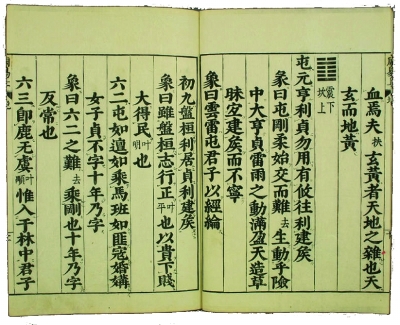 血焉夫扶玄黃者天地之雜也天
玄而地黃
䷂震下坎上
屯元亨利貞勿用有攸往利建矦
彖曰屯剛柔始交而難去生動乎險
中大亨貞雷雨之動滿盈天造草
昧宐建矦而不寧
象曰雲雷屯君子以經綸
初九盤桓利居貞利建矦
象曰雖盤桓志行正叶平也以貴下賤
大得民叶順也
六二屯如邅如乘馬班如匪寇婚媾
女子貞不字十年乃字
象曰六二之難去乘剛也十年乃字
反常也
六三即鹿无虞叶順惟入于林中君子